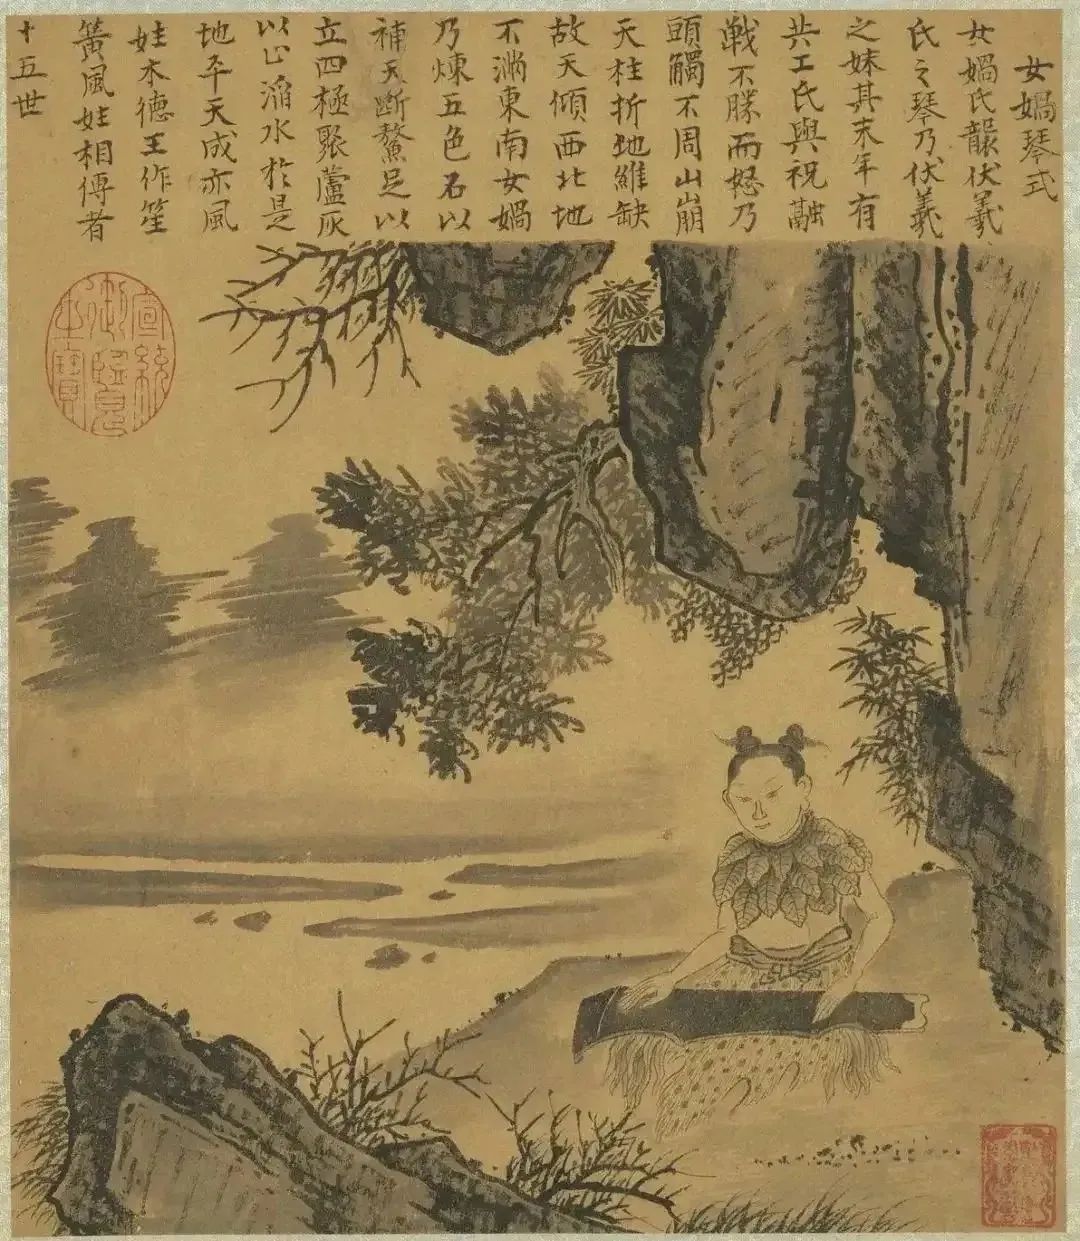 女媧琴式
女媧氏襲伏羲
氏之琴乃伏羲
之妹其末年有
共工氏與祝融
戰不勝而怒乃
頭觸不周山崩
天柱折地維缺
故天傾西北地
不滿東南女媧
乃煉五色石以
補天斷鰲足以
立四極聚蘆灰
以止滔水於是
地平天成亦風
姓木德王作笙
簧風姓相傳者
十五世
宣統
御覽
之寶